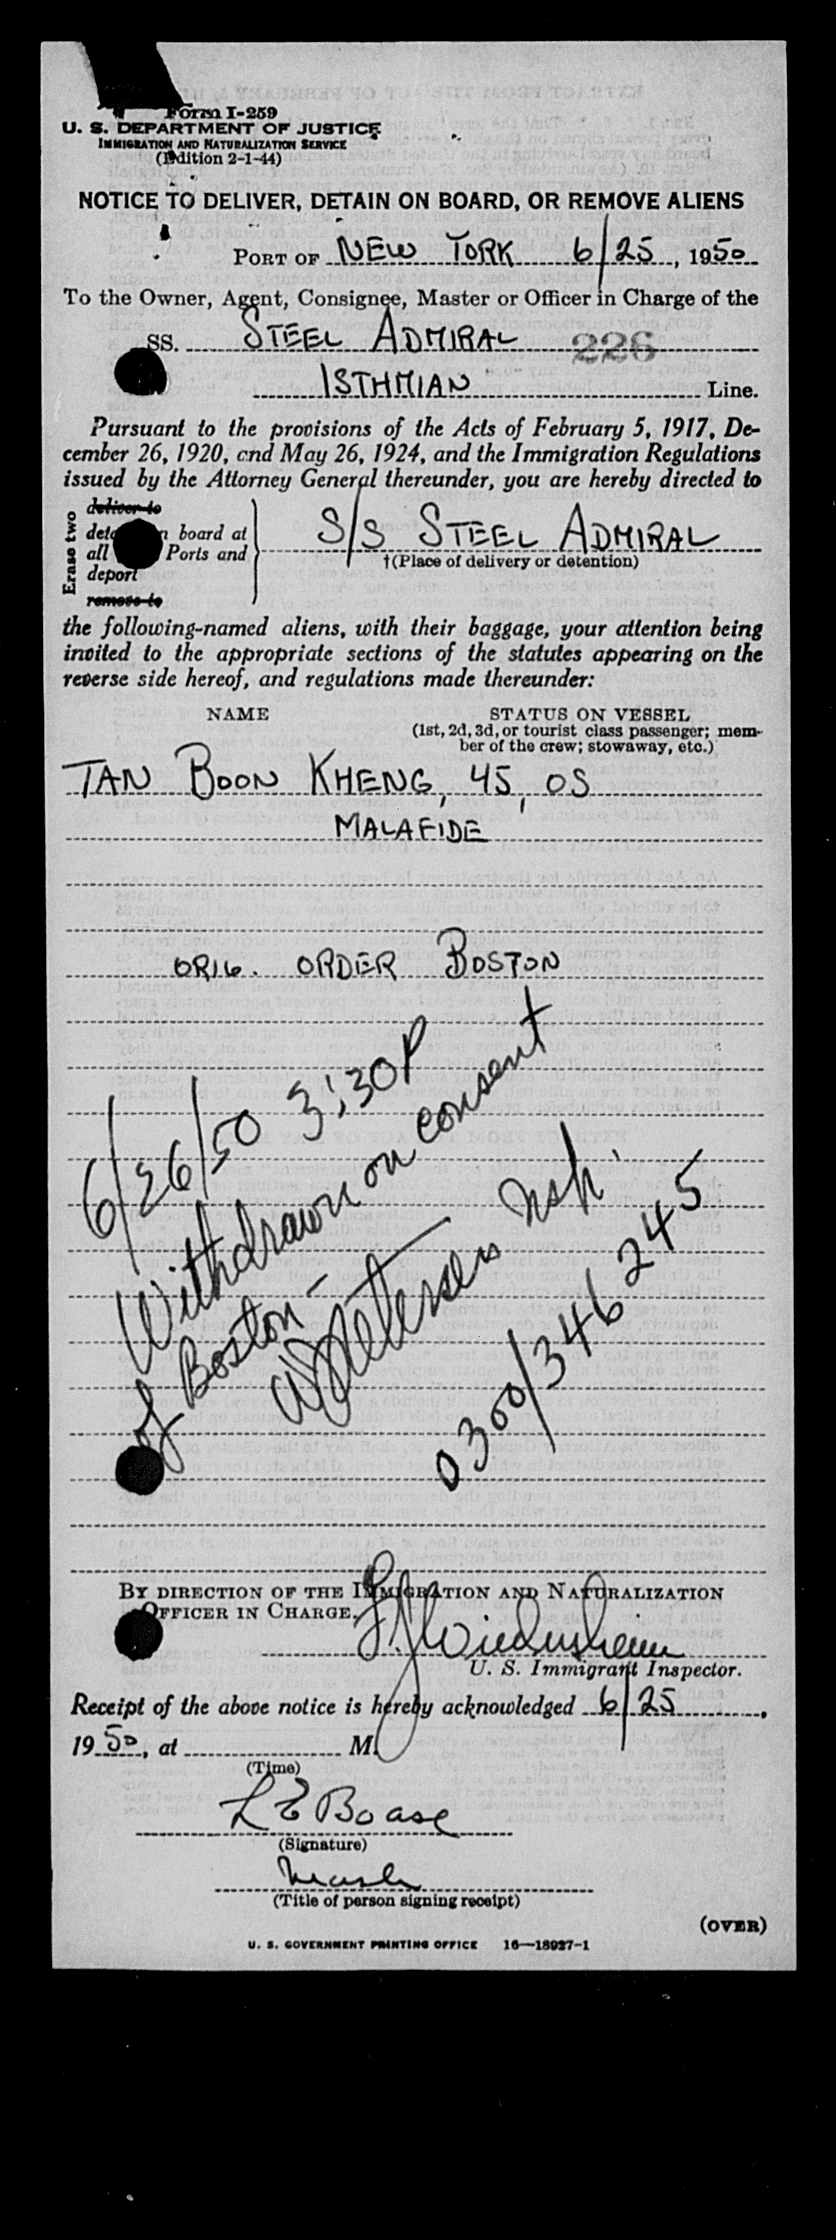 Form I-259
U. S. DEPARTMENT OF JUSTICE
IMMIGRATION AND NATURALIZATION SERVICE
(Edition 2-1-44)
NOTICE TO DELIVER, DETAIN ON BOARD, OR REMOVE ALIENS
PORT OF NEW YORK 6/25, 1950
To the Owner, Agent, Consignee, Master or Officer in Charge of the
SS. STEEL ADMIRAL 226
ISTHMIAN Line.
Pursuant to the provisions of the Acts of February 5, 1917, De-
cember 26, 1920, and May 26, 1924, and the Immigration Regulations
issued by the Attorney General thereunder, you are hereby directed to
Erase two
deliver to
board at
all Ports and
deport
remove to
S/S STEEL ADMIRAL
†(Place of delivery or detention)
the following-named aliens, with their baggage, your attention being
invited to the appropriate sections of the statutes appearing on the
reverse side hereof, and regulations made thereunder:
NAME STATUS ON VESSEL
(1st, 2d, 3d, or tourist class passenger; mem-
ber of the crew; stowaway, etc.)
TAN BOON KHENG, 45, OS
MALAFIDE
ORIG. ORDER BOSTON
6/26/50 3:30P
Withdrawn on consent
of Boston -
W Petersen Insp.
0300/346245
BY DIRECTION OF THE IMMIGRATION AND NATURALIZATION
OFFICER IN CHARGE.
U. S. Immigrant Inspector.
Receipt of the above notice is hereby acknowledged 6/25,
1950, at M.
(Time)
L E Boase
(Signature)
(Title of person signing receipt)
(OVER)
U. S. GOVERNMENT PRINTING OFFICE 16—18927-1